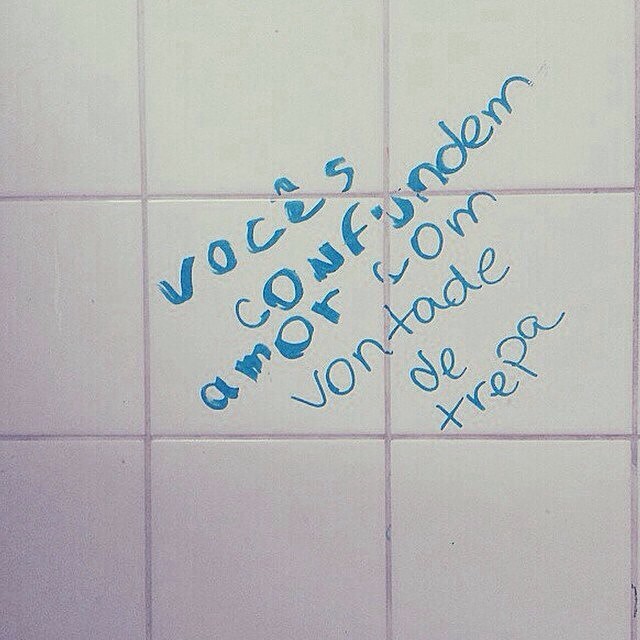 VOCÊS
CONFUNDEM
amOr COM
vontade
de
trepa